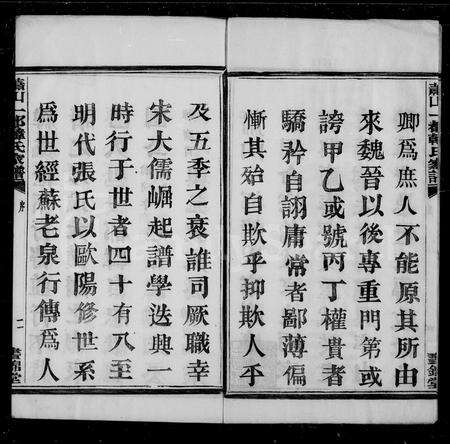 卿爲庶人不能原其所由
來魏晉以後專重門第或
誇甲乙或號丙丁權貴者
驕矜自詡庸常者鄙薄偏
慚其始自欺乎抑欺人乎
及五季之衰誰司厥職幸
宋大儒崛起譜學迭興一
時行于世者四十有八至
明代張氏以歐陽修世系
爲世經蘇老泉行傳爲人
蕭山一都韓氏家譜
序
二
晝錦堂